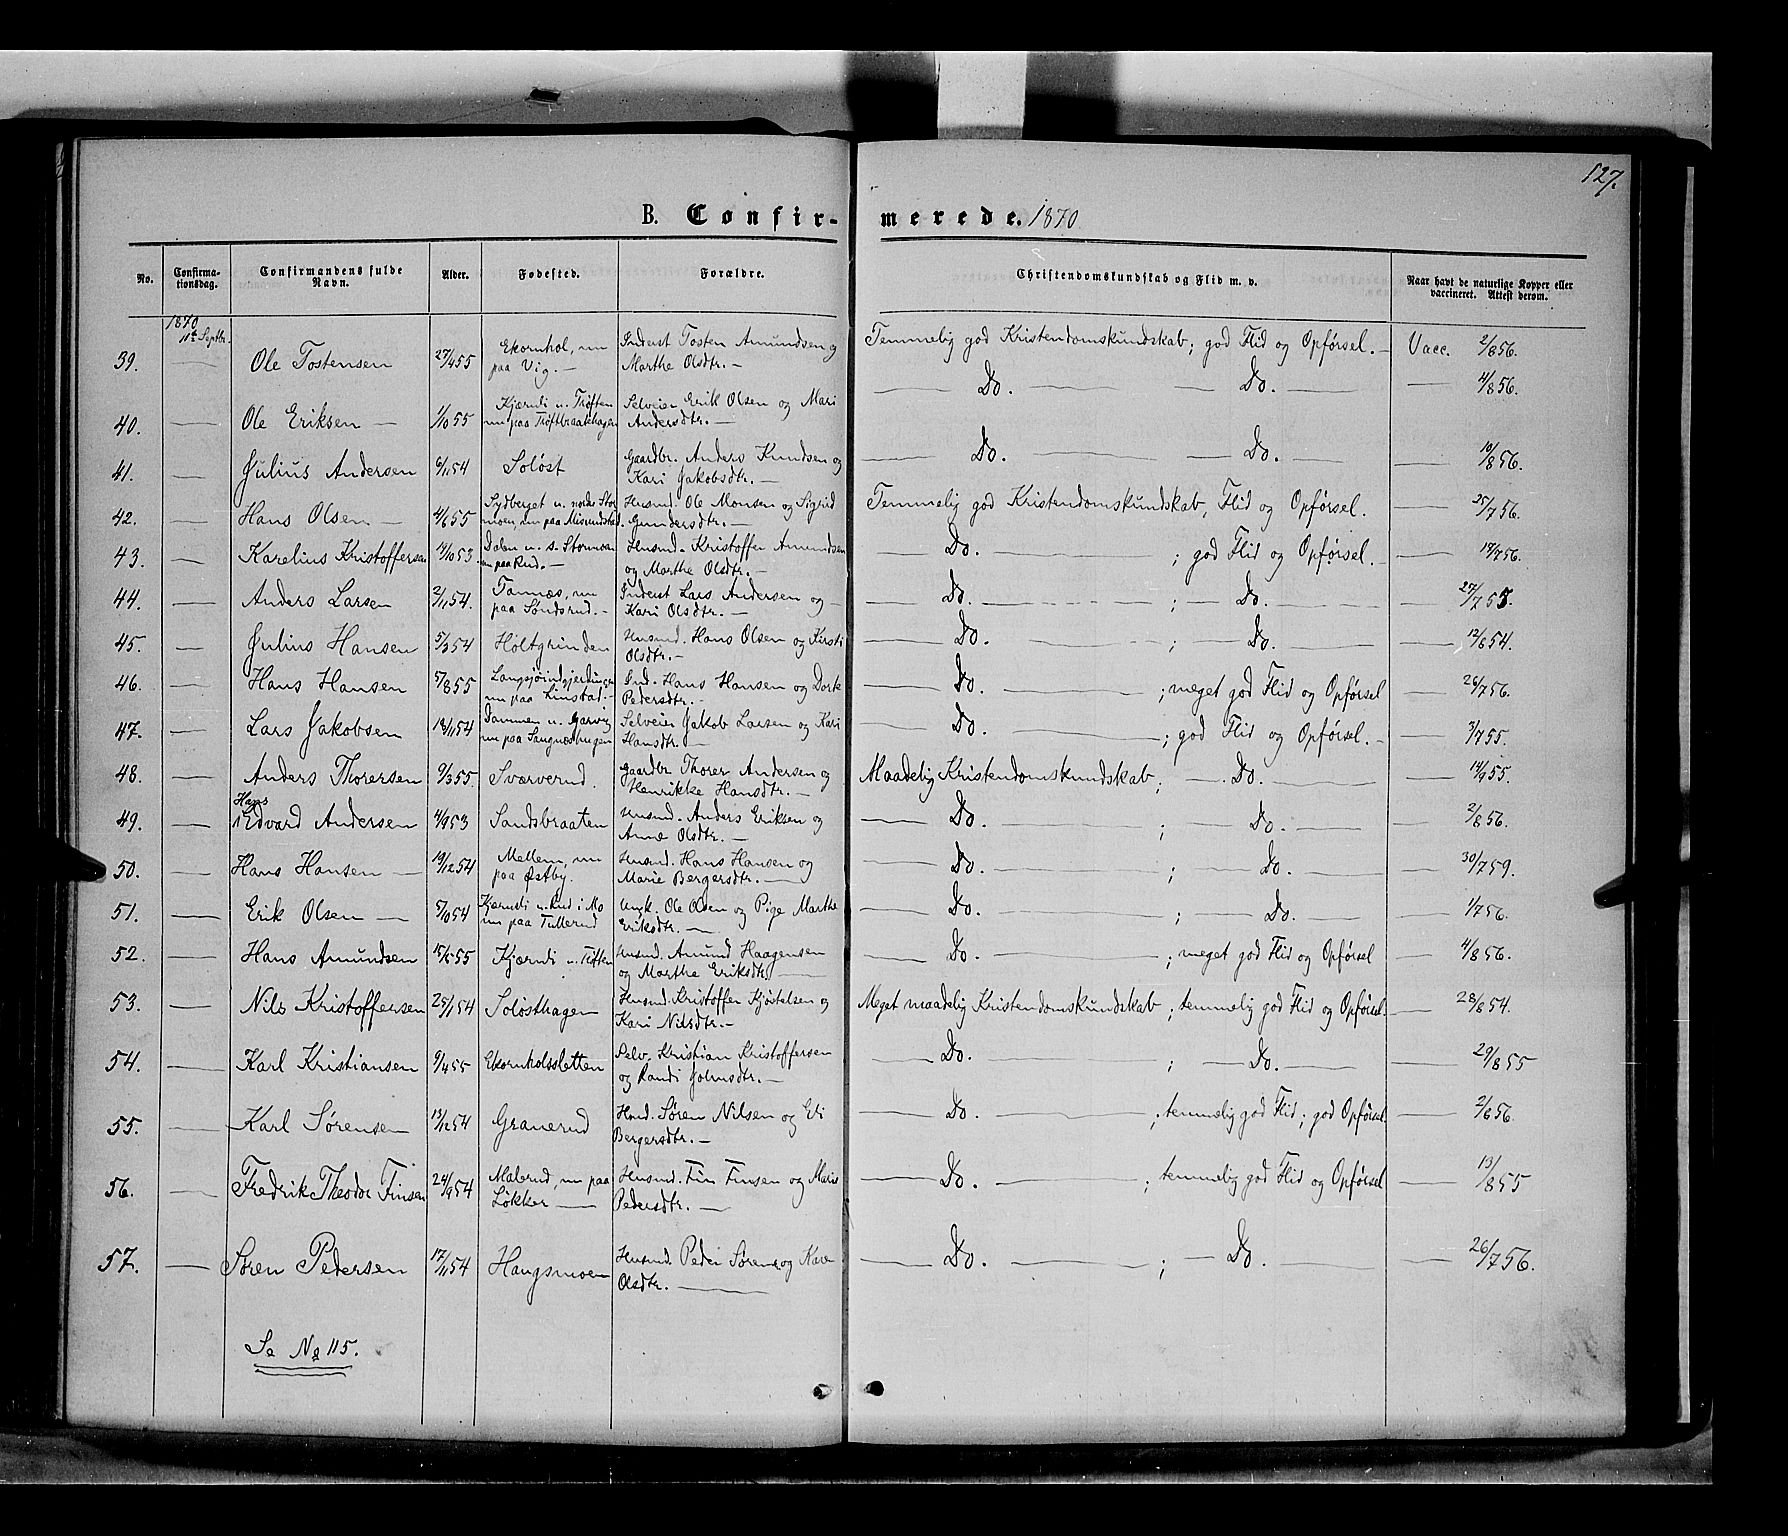 127.
B. Confirmerede. 1870
No.
Confirmationsdag.
Confirmandens fulde Navn.
Alder.
Fødested.
Forældre.
Christendomskundskab og Flid m. v.
Naar havt de naturlige Kopper eller vaccineret. Attest derom.
1870
11te Septbr.
39. — Ole Tostensen 27/4 55 Ekornhol, nu paa Vig. — Inderst Tosten Amundsen og Marthe Olsdtr. — Temmelig god Kristendomskundskab; god Flid og Opførsel. — Vacc. 2/8 56.
40. — Ole Eriksen — 1/10 55 Kjærndi u. Tøften nu paa Tøftbraatehagen Selveier Erik Olsen og Mari Andersdtr. — Do. — Do. — 4/8 56.
41. — Julius Andersen 6/11 54 Soløst Gaardbr. Anders Knudsen og Kari Jakobsdtr. — Do. — Do. — 10/8 56.
42. — Hans Olsen — 4/6 55 Sydberget u. nordre Stormoen, nu paa Misundstad. Husmd. Ole Monsen og Sigrid Gundersdtr. — Temmelig god Kristendomskundskab, Flid og Opførsel. — 25/7 56.
43. — Karelius Kristoffersen 14/10 53. Dalen u. s. Stormoen nu paa Rud. — Husmd. Kristoffer Amundsen og Marthe Olsdtr. — Do. — ; god Flid og Opførsel. — 17/7 56.
44. — Anders Larsen 2/11 54. Tannæs, nu paa Søndsrud. — Inderst Lars Andersen og Kari Olsdtr. — Do. — ; — Do. — 27/7 55.
45. — Julius Hansen 5/3 54 Holtgrinden Husmd. Hans Olsen og Kirsti Olsdtr. — Do. — ; — Do. — 12/8 54.
46. — Hans Hansen 5/8 55 nu paa Linstad. — Ind. Hans Hansen og Dorte Pedersdtr. — Do. — ; meget god Flid og Opførsel — 26/7 56.
47. — Lars Jakobsen 18/11 54 Dammen u. Garvig nu paa Sangnæshagen Selveier Jakob Larsen og Kari Hansdtr. — Do. — ; god Flid og Opførsel. — 3/7 55.
48. — Anders Thorersen 9/3 55. Sværverud. Gaardbr Thorer Andersen og Henrikke Hansdtr. — Maadelig Kristendomskundskab; — Do. — 14/9 55.
49. — Hans Edvard Andersen 4/9 53 Sandsbraaten Husmd. Anders Eriksen og Anne Olsdtr. — Do. — ; — Do. — 2/8 56.
50. — Hans Hansen — 19/12 54 Mellem, nu paa Østby. Husmd. Hans Hansen og Marie Bergersdtr. — Do. — ; — Do. — 30/7 59.
51. — Erik Olsen — 5/10 54 Kjærndi u. Rud i Mo nu paa Tullerud Ungk. Ole Olsen og Pige Marthe Eriksdtr. — Do. — ; — Do. — 1/7 56.
52. — Hans Amundsen 15/5 55 Kjærndi u. Tøften Husmd. Amund Haagensen og Marthe Eriksdtr. — Do. — ; meget god Flid og Opførsel — 4/8 56.
53. — Nils Kristoffersen 25/1 54 Soløsthagen Husmd. Kristoffer Kjøstelsen og Kari Nilsdtr. — Meget maadelig Kristendomskundskab; temmelig god Flid og Opførsel. — 28/8 54.
54. — Karl Kristiansen 9/4 55 Ekornholssletten Selv. Kristian Kristoffersen og Randi Johnsdtr. — Do. — ; — Do. — 29/8 55
55. — Karl Sørensen 13/12 54 Granerud Husmd. Søren Nilsen og Eli Bergersdtr. — Do. — ; temmelig god Flid; god Opførsel — 2/8 56.
56. — Fredrik Theodor Finsen 24/9 54 Malerud, nu paa Løkker — Husmd. Fin Finsen og Marie Pedersdtr. — Do. — ; temmelig god Flid og Opførsel — 13/8 55
57. — Søren Pedersen 17/11 54 Haugsmoen Husmd. Peder Sørens. og Karen Olsdtr. — Do. — ; — Do. — 26/7 56.
Sa No 115.